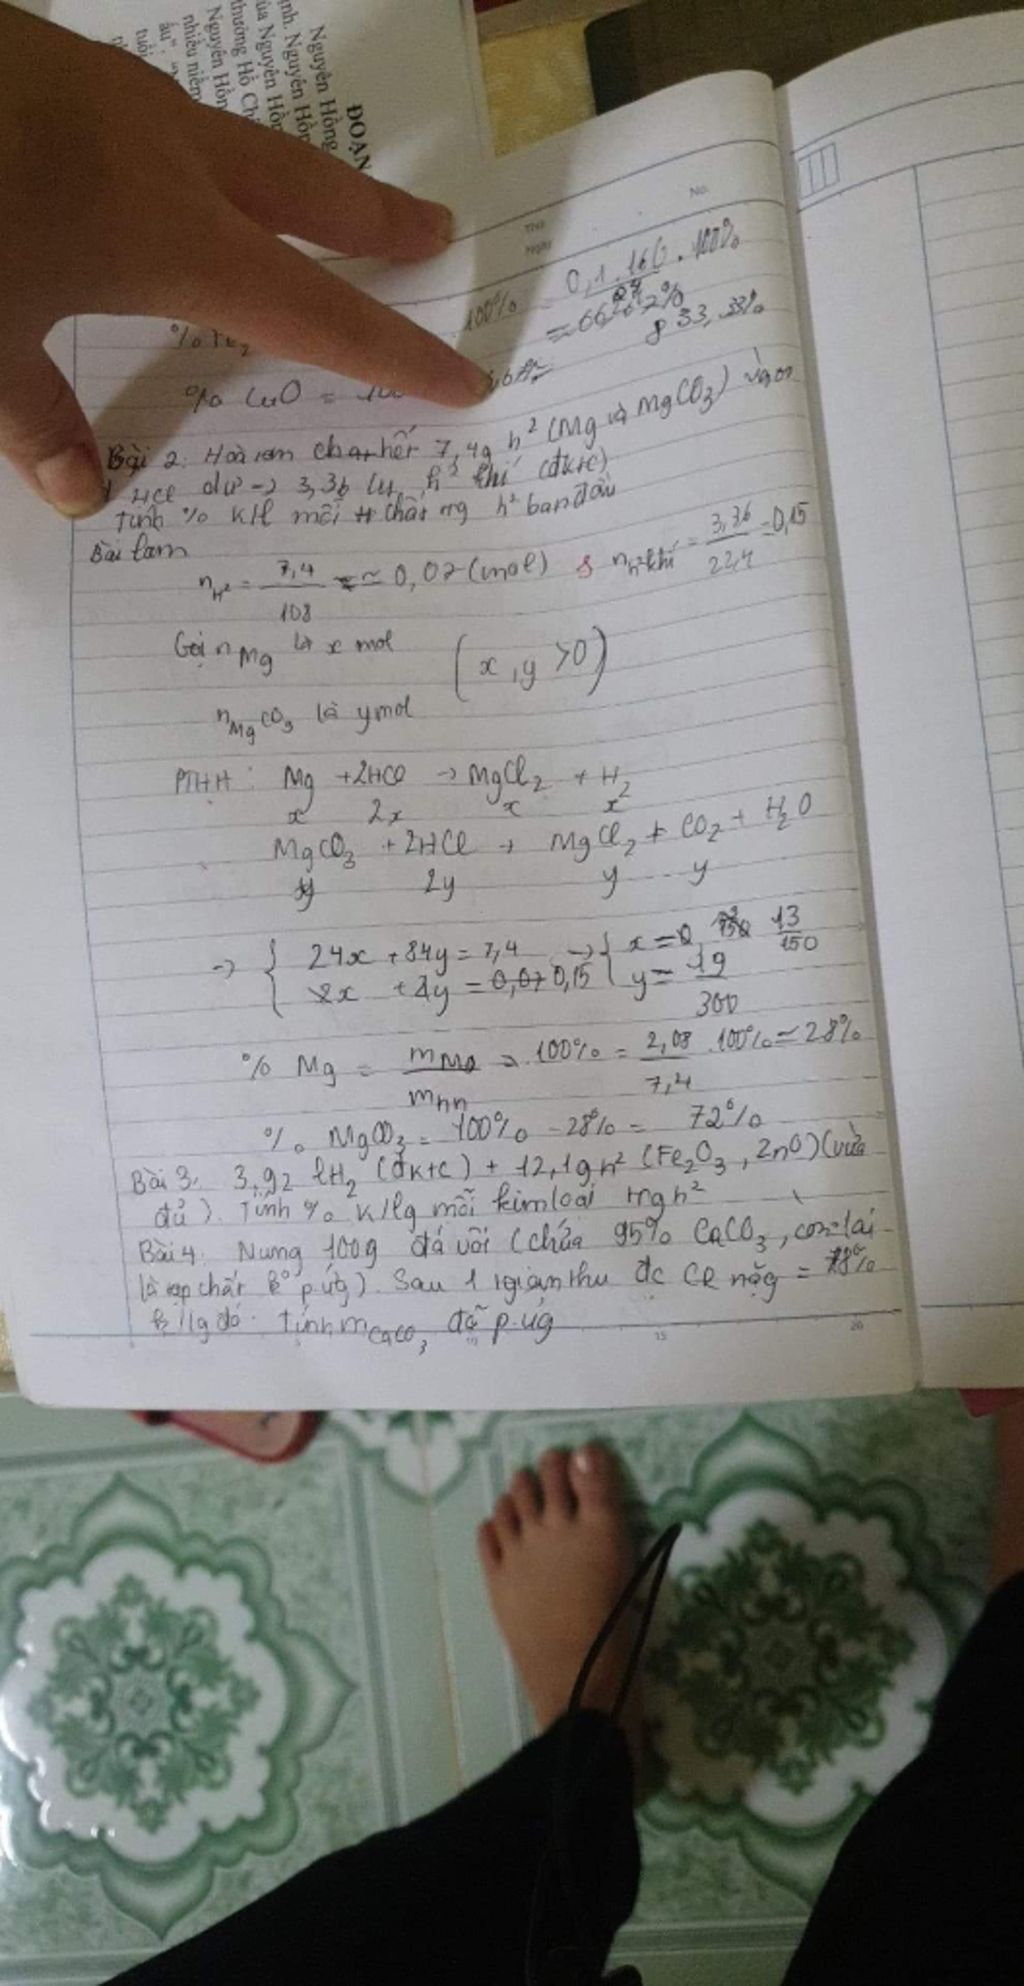 ĐOẠN
Nguyên Hồng
ịnh. Nguyên Hồn
ủa Nguyên Hồn
thưởng Hồ Chí
Nguyên Hồn
nhiều niềm
ấu".
tuổi
Thứ
Ngày
No.
100% = 0,1.160.100%
= 66,67% 33,33%
% CuO =
Bài 2. Hoà tan hết 7,4g h² (Mg và MgCO3) vào
HCl dư -> 3,36 lít h² khí (đktc)
Tính % K/l mỗi chất trg h² ban đầu
Bài làm
n_h² = 7,4/108 ≈ 0,07 (mol) n_h² khí = 3,36/22,4 = 0,15
Gọi nMg là x mol (x, y >0)
nMgCO3 là y mol
PTHH: Mg + 2HCl -> MgCl2 + H2
x 2x x x
MgCO3 + 2HCl -> MgCl2 + CO2 + H2O
y 2y y y
-> { 24x + 84y = 7,4 -> { x = 13/150
x + y = 0,15 y = 19/300
% Mg = mMg/mhh . 100% = 2,08/7,4 . 100% = 28%
% MgCO3 = 100% - 28% = 72%
Bài 3. 3,92 lH2 (đktc) + 12,1g h² (Fe2O3, ZnO) (vừa
đủ). Tính % K/lg mỗi kim loại trg h²
Bài 4. Nung 100g đá vôi (chứa 95% CaCO3, còn lại
là tạp chất k° p.ứg). Sau 1 tgian thu đc CR nặg = 78%
k/lg đó. Tính mCaCO3 đã p.ứg
15
20